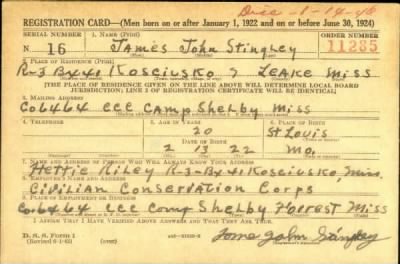 Disc - 1-14-46
REGISTRATION CARD—(Men born on or after January 1, 1922 and on or before June 30, 1924)
SERIAL NUMBER 1. NAME (Print) ORDER NUMBER
N 16 James John Stingley 11285
2. PLACE OF RESIDENCE (Print)
R-3 Bx 41 Kosciusko Leake Miss
(THE PLACE OF RESIDENCE GIVEN ON THE LINE ABOVE WILL DETERMINE LOCAL BOARD
JURISDICTION; LINE 2 OF REGISTRATION CERTIFICATE WILL BE IDENTICAL)
3. MAILING ADDRESS
Co 6464 CCC Camp Shelby Miss
4. TELEPHONE 5. AGE IN YEARS 6. PLACE OF BIRTH
20 St Louis
DATE OF BIRTH
2 13 22 Mo.
7. NAME AND ADDRESS OF PERSON WHO WILL ALWAYS KNOW YOUR ADDRESS
Hettie Riley R-3-Bx 41 Kosciusko, Miss.
8. EMPLOYER'S NAME AND ADDRESS
Civilian Conservation Corps
9. PLACE OF EMPLOYMENT OR BUSINESS
Co 6464 CCC Camp Shelby Forrest Miss
I AFFIRM THAT I HAVE VERIFIED ABOVE ANSWERS AND THAT THEY ARE TRUE.
D. S. S. Form 1